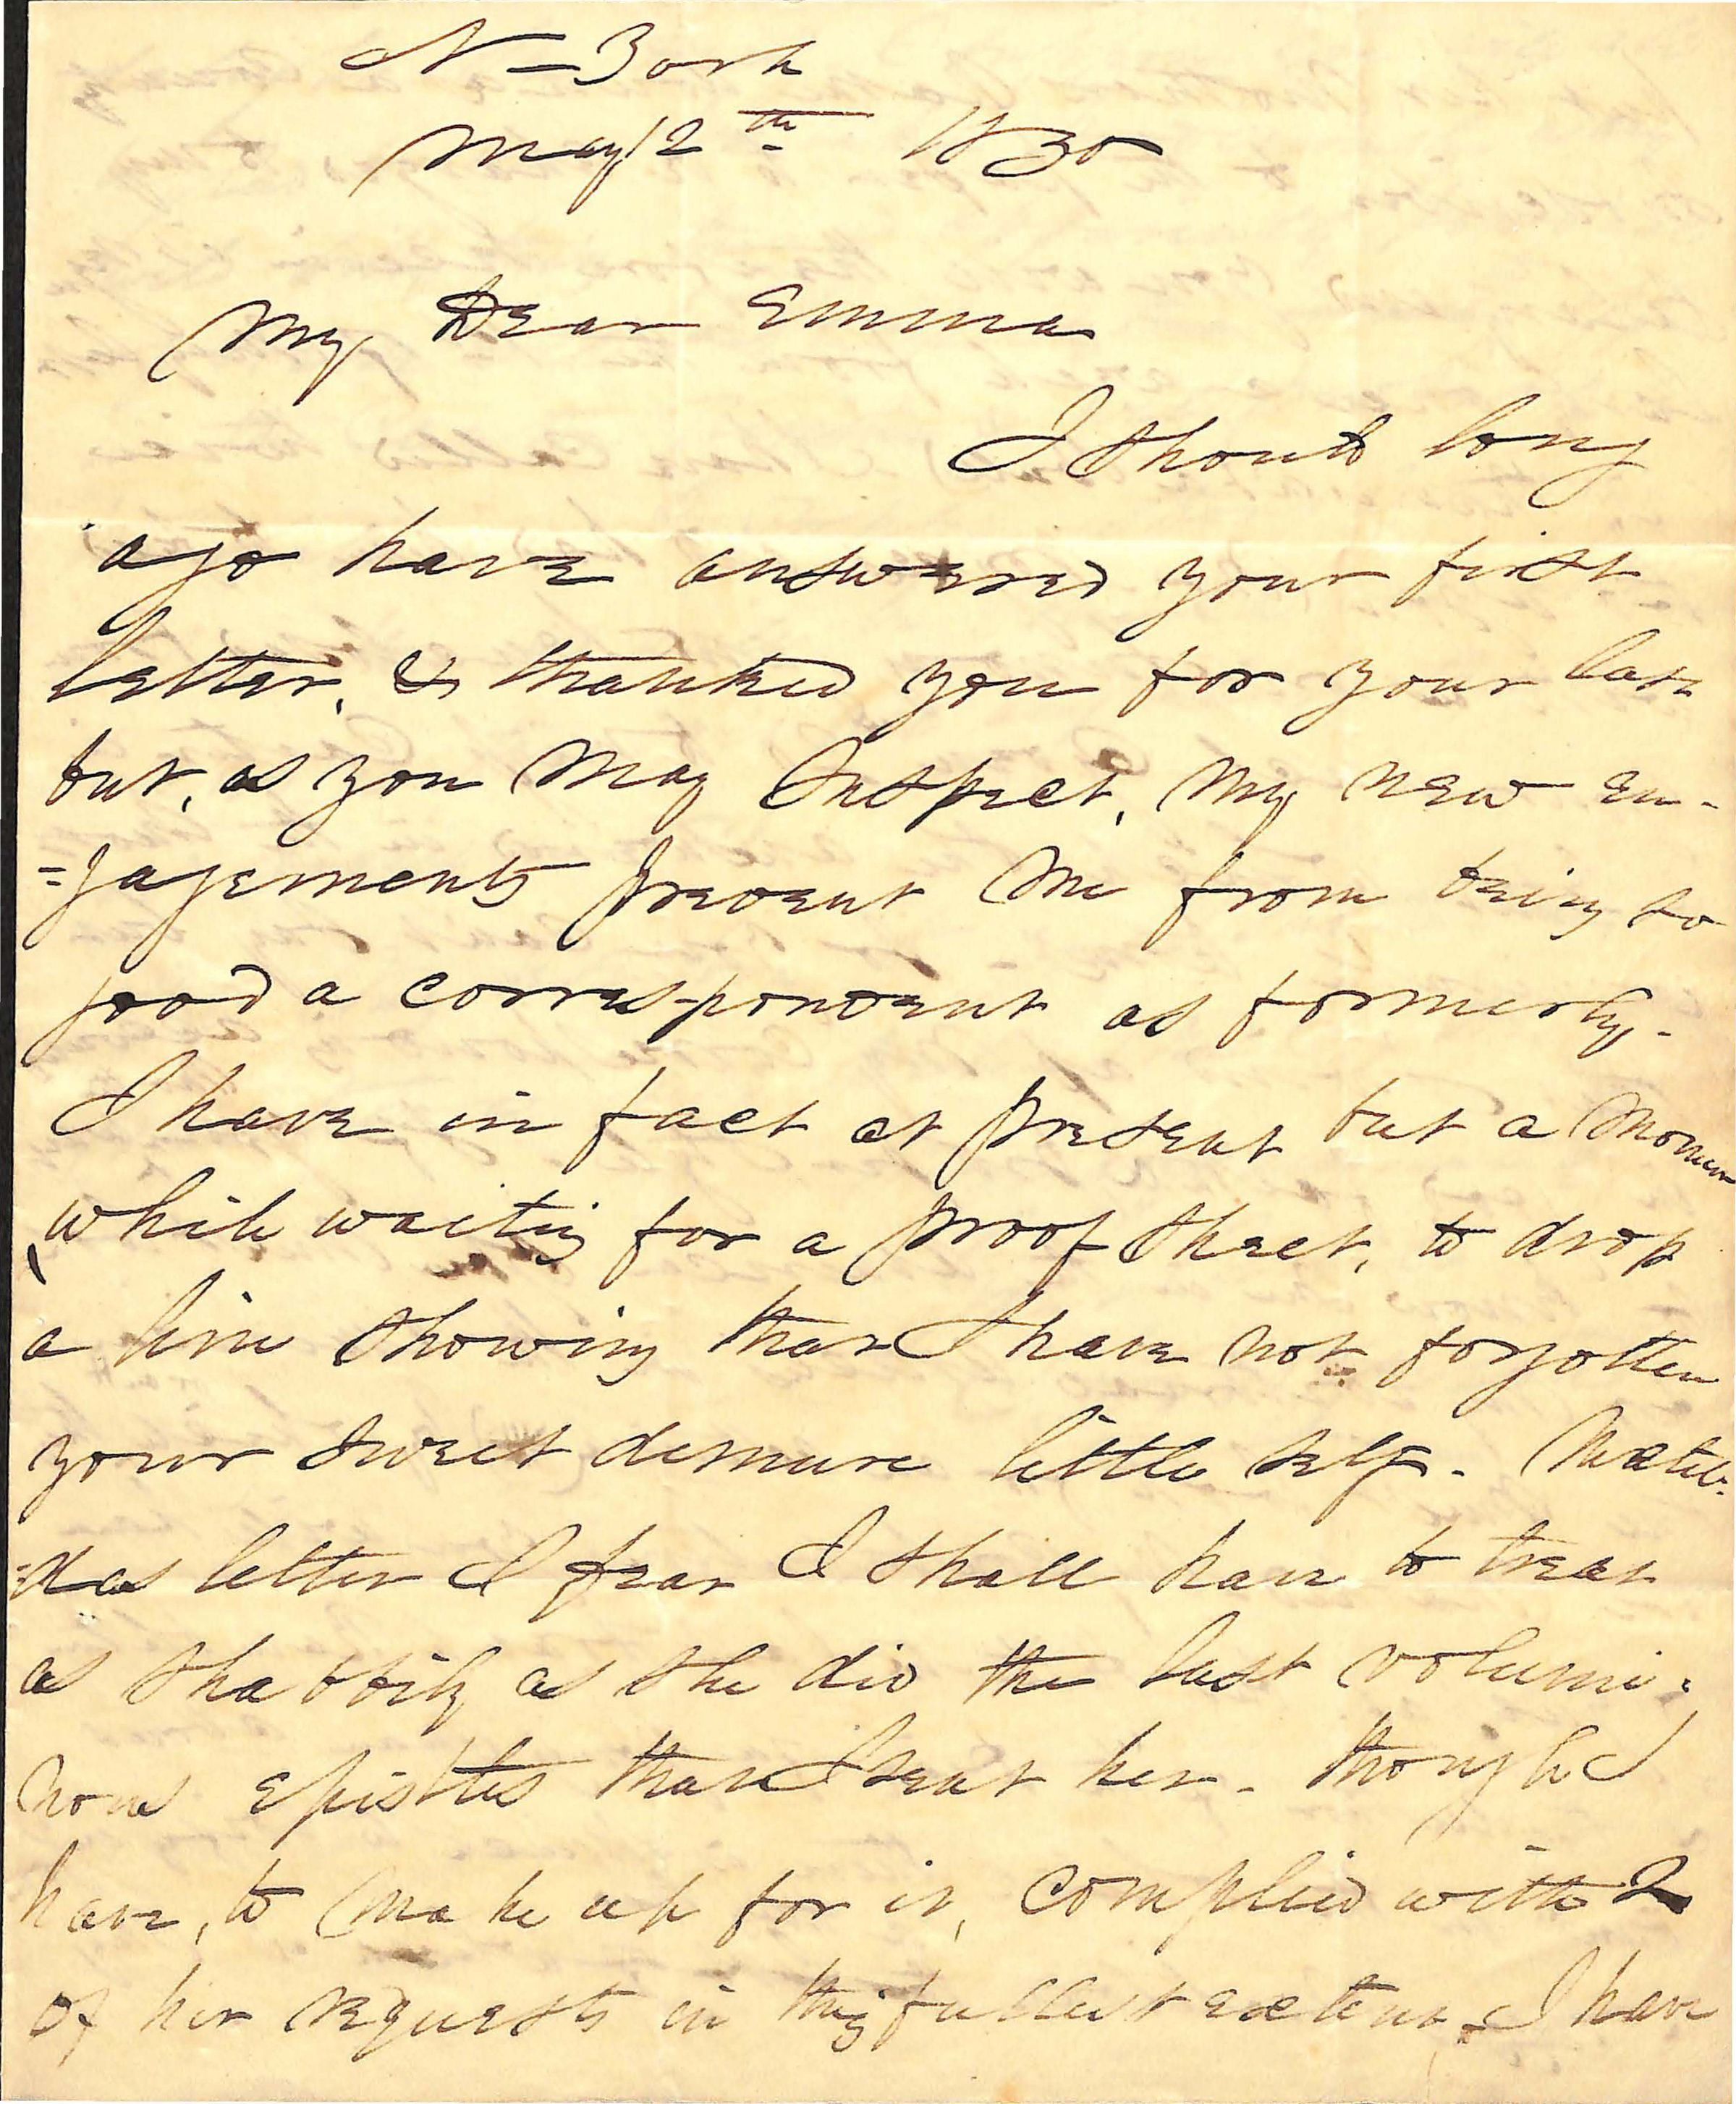 N= York
May 12th 1830
My Dear Emma
I should long
ago have answered your first
letter, & thanked you for your last
but, as you may suspect, my new en-
=gagements prevent me from being so
good a correspondent as formerly.
I have in fact at present but a moment
while waiting for a proof sheet, to drop
a line showing that I have not forgotten
your sweet demure little self. Matil-
=das letter I fear I shall have to treat
as shabbily as she did the last volumi-
nous epistles that I sent her - though I
have, to make up for it, complied with 2
of her requests in the fullest extent - I have